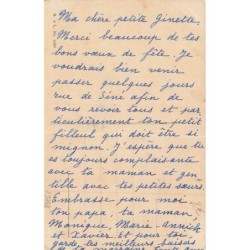 Ma chère petite Ginette,
Merci beaucoup de tes
bons vœux de fête. Je
voudrais bien venir
passer quelques jours
rue de Siné afin de
vous revoir tous et par-
ticulièrement ton petit
filleul qui doit être si
mignon. J'espère que tu
es toujours complaisante
avec ta maman et gen-
tille avec tes petites sœurs.
Embrasse pour moi
ton papa, ta maman,
Monique, Marie-Annick
et Xavier. Et pour toi
garde, tes meilleurs